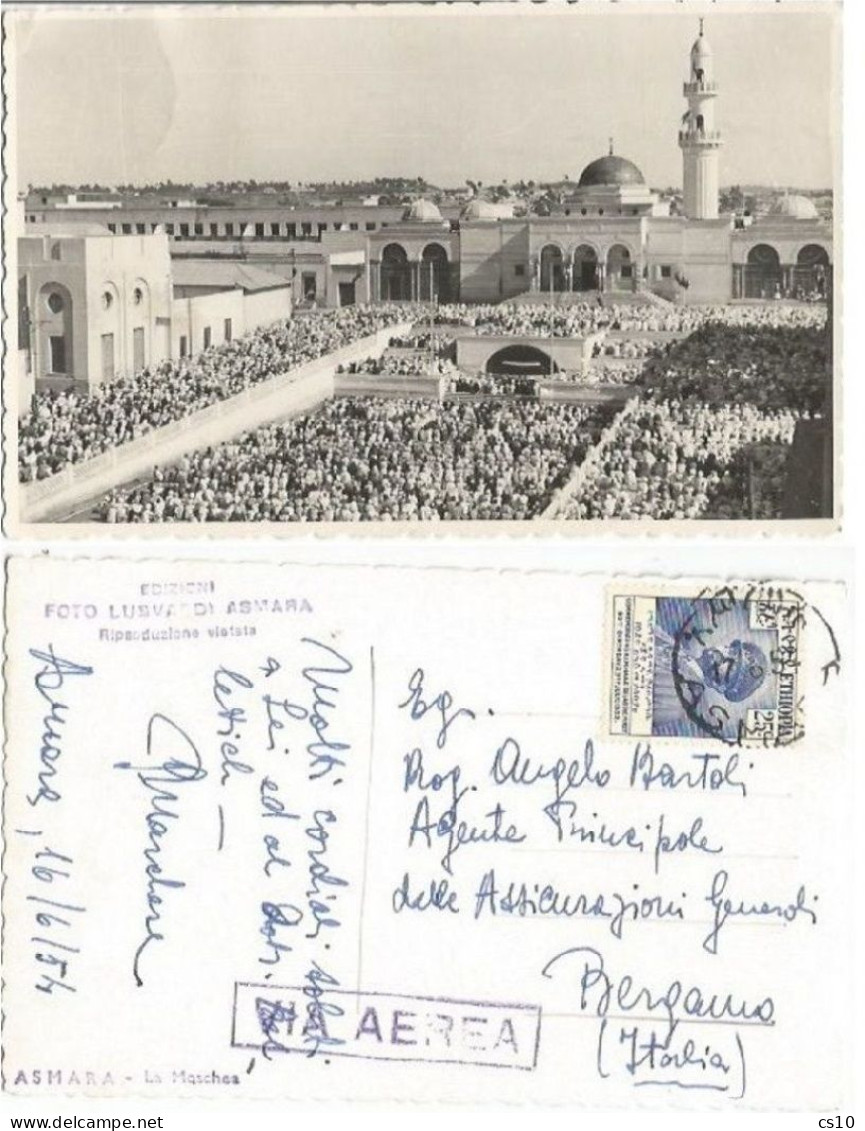 EDIZIONI
FOTO LUSVARDI ASMARA
Riproduzione vietata
Asmara, 16/6/54
Molti cordiali saluti
a Lei ed al Dott.
Egr.
Rag. Angelo Bartoli
Agente Principale
delle Assicurazioni Generali
Bergamo
(Italia)
VIA AEREA
ASMARA - La Moschea
ETHIOPIA
25c
cs10